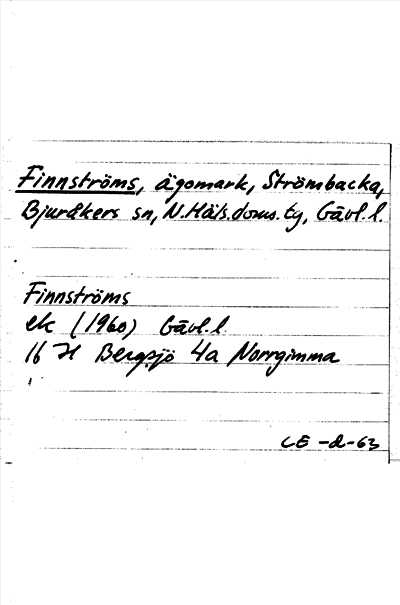 Finnströms, ägomark, Strömbacka,
Bjuråkers sn, N.Häls.doms.ty, Gävl.l.
Finnströms
ek (1960) Gävl.l.
16 H Bergsjö 4a Norrgimma
CE-d-63